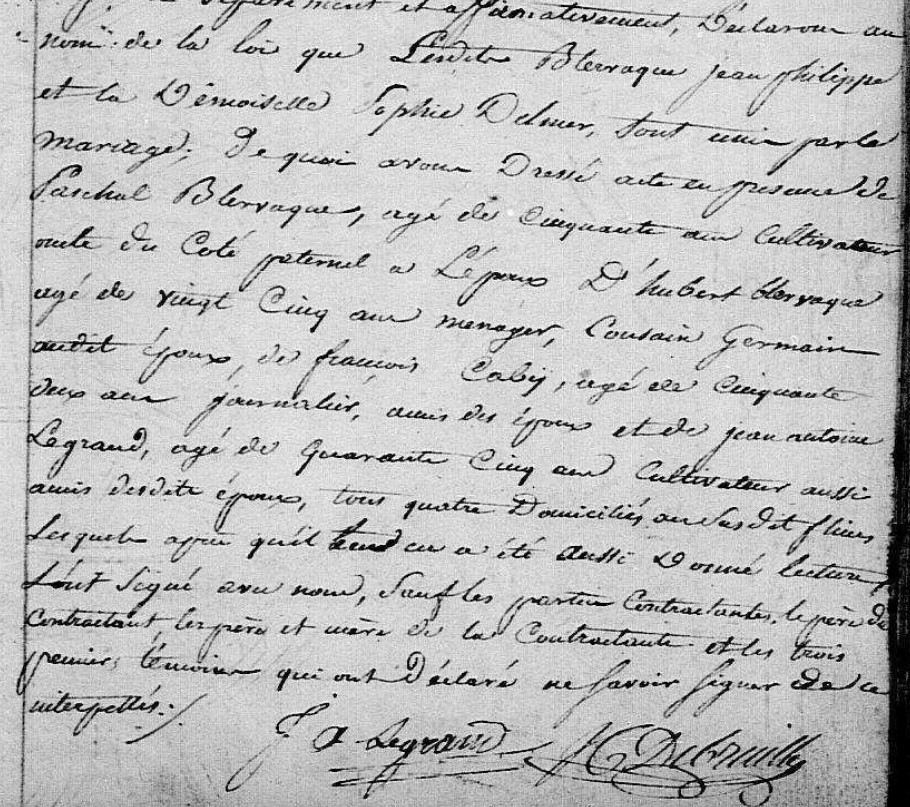 séparément et affirmativement, Déclarons au
nom de la loi que Lesdits Blervaque jean philippe
et la Démoiselle Sophie Delmer, sont unis par le
mariage; De quoi avons Dressé acte en presence de
Paschal Blervaque, agé de Cinquante ans Cultivateur
oncle du Coté paternel a L'époux D'hubert blervaque
agé de vingt Cinq ans menager, Cousain Germain
audit époux, de françois Caby, agé de Cinquante
deux ans journalier, amis des époux et de jean antoine
Legrand, agé de Quarante Cinq ans Cultivateur aussi
amis desdits époux, tous quatre Domiciliés au Susdit flines
Lesquels apres qu'il leur en a été aussi Donné lecture
L'ont Signé avec nous, Sauf les parties Contractantes, le père du
Contractant les père et mère de la Contractante et les trois
premiers témoins qui ont Déclaré ne Savoir Signer de ce
interpellés ./.
J A Legrand